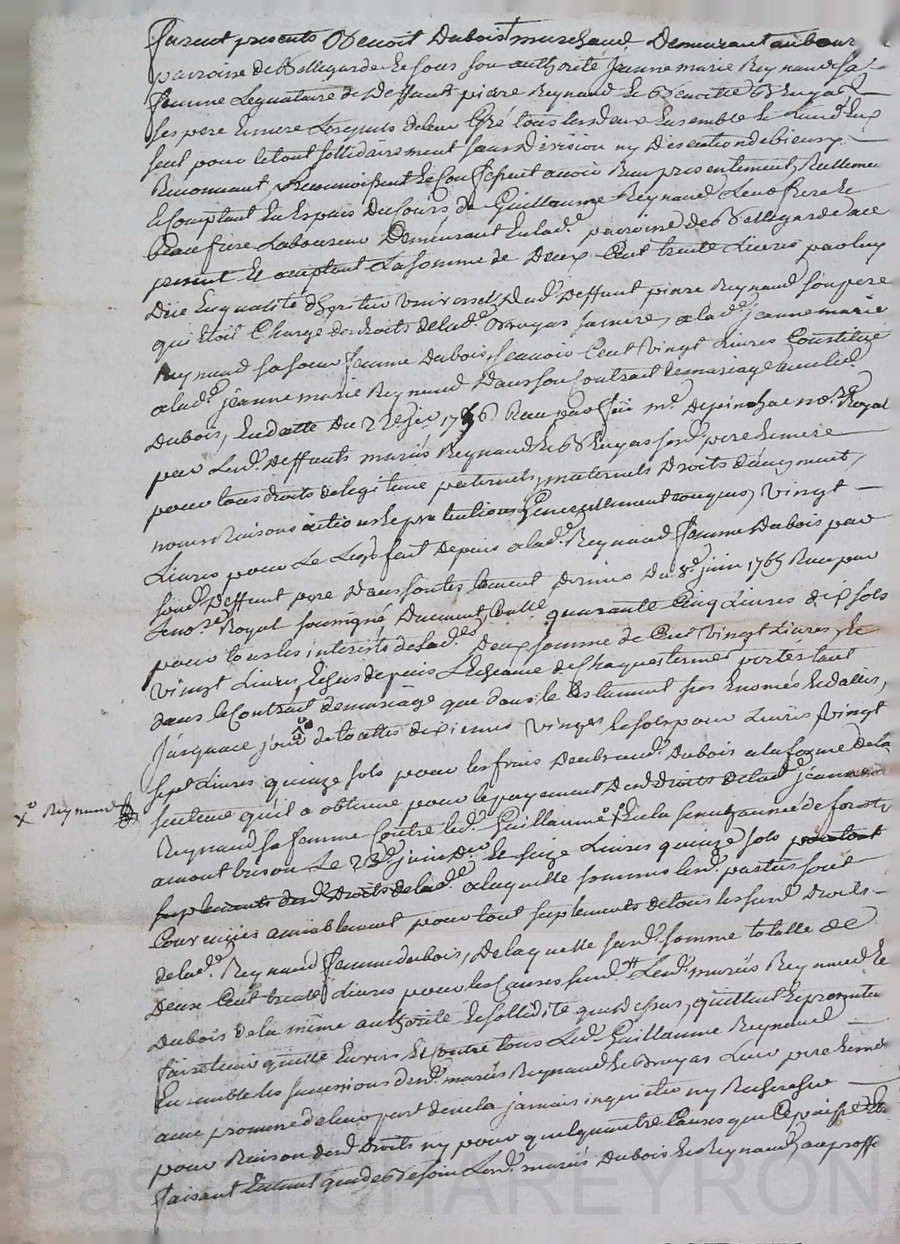 furent presents Benoit Dubois marchand Demeurant au bour
paroisse de Bellegarde Et sous son authorité Jeanne marie Reynaud sa
femme Legnataire de Deffunt piere Reynaud Et Benoitte Bruyas
ses pere Et mere Lesquels de leur Gré tous les deux Ensemble Et L'un d'Eux
seul pour le tout sollidairement sans Division ny Discution de biens
Renonceant, Reconnoissent Et Confessent avoir Reçu presentement, Rellement
Et Comptant En Espaces Du Cours de Guillaume Reynaud Leur frere Et
beau frere Laboureur Demeurant En lad. paroisse de Bellegarde ace
present Et aceptant La somme de Deux Cent trente Livres par luy
Düe En qualité d'heritier Universel Dud. Deffunt piere Reynaud son pere
qui étoit Chargé des droits de lad. Bruyas sa mere, alad. Jeanne marie
Reynaud sa soeur femme Dubois, scavoir Cent Vingt Livres Constituée
alad. Jeanne marie Reynaud Dans son Contrat de mariage avec led.
Dubois, En datte Du 2 1756 Reçu par feu me. Depinchae nore. Royal
par Lesd. Deffunts mariés Reynaud Et Bruyas sesd. pere Et mere
pour tous droits de legitime paternels, maternels Droits
noms Raisons actions Et pretentions Generallement conques, Vingt
Livres pour Le Legs fait Depuis alad. Reynaud femme Dubois par
sond. Deffunt pere Dans son testament Du 8e. juin 1765 Reçu par
Le nore. Royal soussigné Duement Collé quarante Cinq Livres dix sols
pour tous les interets de lad. Deux somme de Cent Vingt Livres, Et
Vingt Livres, Echus depuis L'Echeance de Chaque termes portés tant
dans le Contrat de mariage que dans le testament sus Enomés Et dattés,
Jusqu'a ce jour de toattes dixiemes Vingt Et sols pour Livres Vingt
sept Livres quinze sols pour les frais Deubs aud. Dubois a la forme de la
sentence qu'il a obtenue pour le payement Desd. droits de lad. Jeanne
x Reynaud
Reynaud sa femme Contre led. Guillaume En la senechaussée de forest
a montbrison Le 23e. juin Der. Et seize Livres quinze sols pour tout
suplements desd. Droits de lad. a laquelle somme Lesd. parties sont
Convenues amiablement pour tout suplements de tous les susd. Droits
de lad. Reynaud femme dubois, De laquelle susd. somme totalle de
Deux Cent trente Livres pour les Causes susd. Lesd. mariés Reynaud Et
Dubois de la même authorité Et sollidité que dessus, quittent Et promettent
faire tenir quitte Envers Et Contre tous Led. Guillaume Reynaud
Ensemble les successions desd. mariés Reynaud Et Bruyas Leur pere Et mere
avec promesse de leur part de ne la jamais inquietter ny Rechercher
pour Raison desd. Droits ny pour quelquautre Causes que Ce puisse Etre
faisant Entant que de besoin Lesd. mariés Dubois Et Reynaud, au proffit
Pascal CHAREYRON